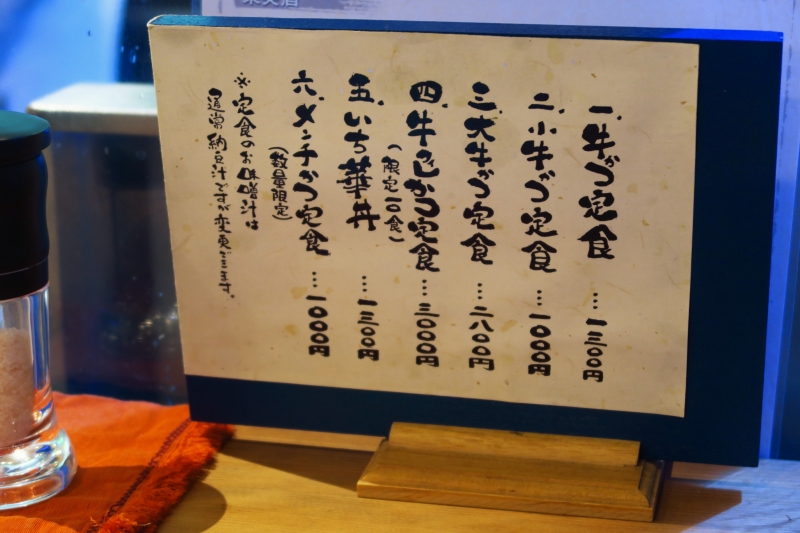 一、牛かつ定食 … 一三〇〇円
二、小牛かつ定食 … 一〇〇〇円
三、大牛かつ定食 … 二八〇〇円
四、牛ひれかつ定食 … 三〇〇〇円
(限定一〇食)
五、いち華丼 … 一三〇〇円
六、メンチかつ定食 … 一〇〇〇円
(数量限定)
※定食のお味噌汁は
通常納豆汁ですが変更できます。